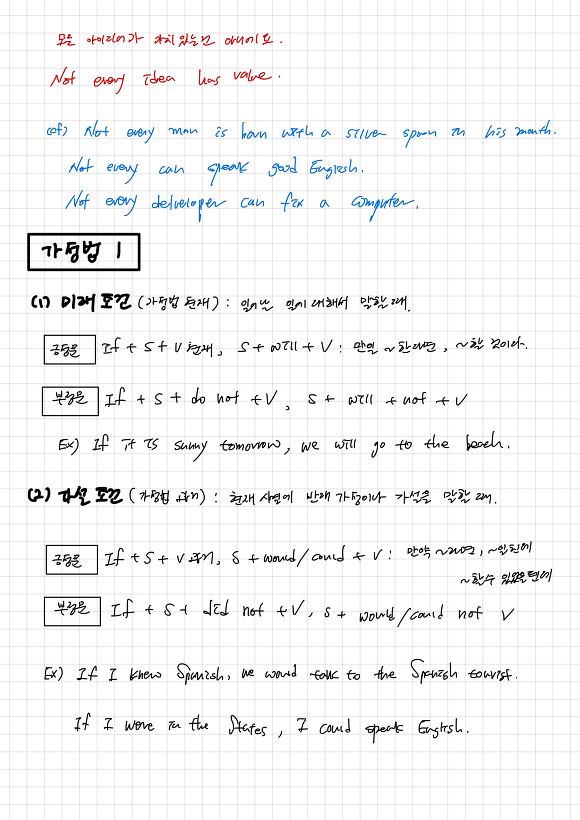 모든 아이디어가 가치 있는건 아니에요.
Not every idea has value.
cf) Not every man is born with a silver spoon in his mouth.
Not every can speak good English.
Not every delveloper can fix a computer.
가정법 1
(1) 미래 조건 (가정법 현재) : 일어날 일에 대해서 말할 때.
긍정문 If + S + V 현재, S + will + V : 만일 ~한다면, ~할 것이다.
부정문 If + S + do not + V, S + will + not + V
Ex) If it is sunny tomorrow, we will go to the beach.
(2) 가설 조건 (가정법 과거) : 현재 사실에 반대 가정이나 가설을 말할 때.
긍정문 If + S + V 과거, S + would/could + V : 만약 ~라면, ~일텐데
~할수 있었을텐데
부정문 If + S + did not + V, S + would/could not V
Ex) If I knew Spanish, we would talk to the Spanish tourist.
If I were in the States, I could speak English.